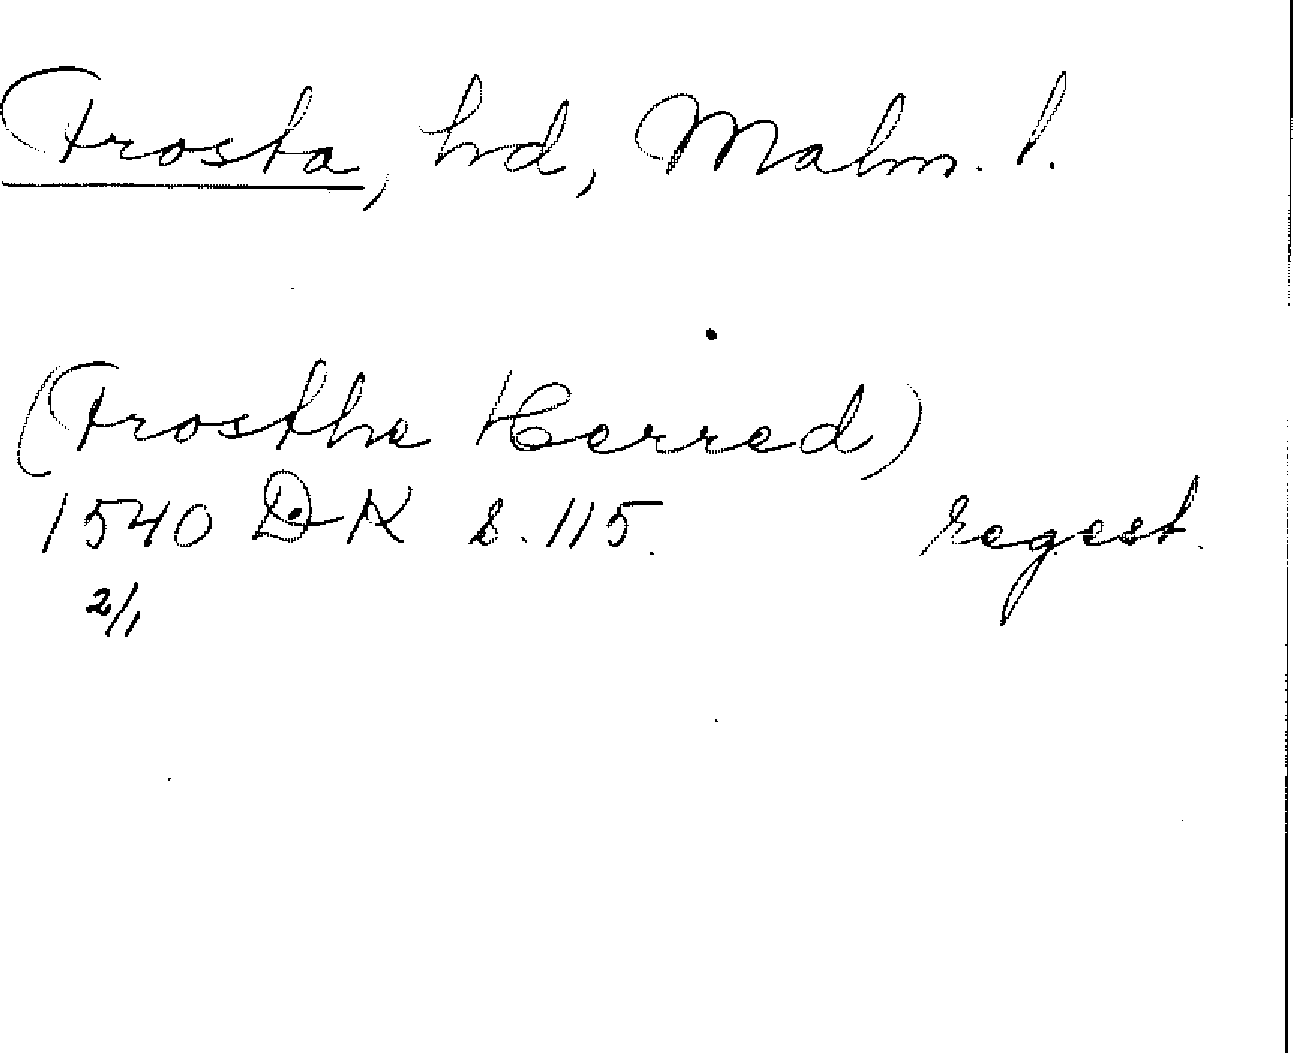 Frosta, hd, Malm. l.
(Frostha Herred)
1540 DK s. 115. regest.
2/1